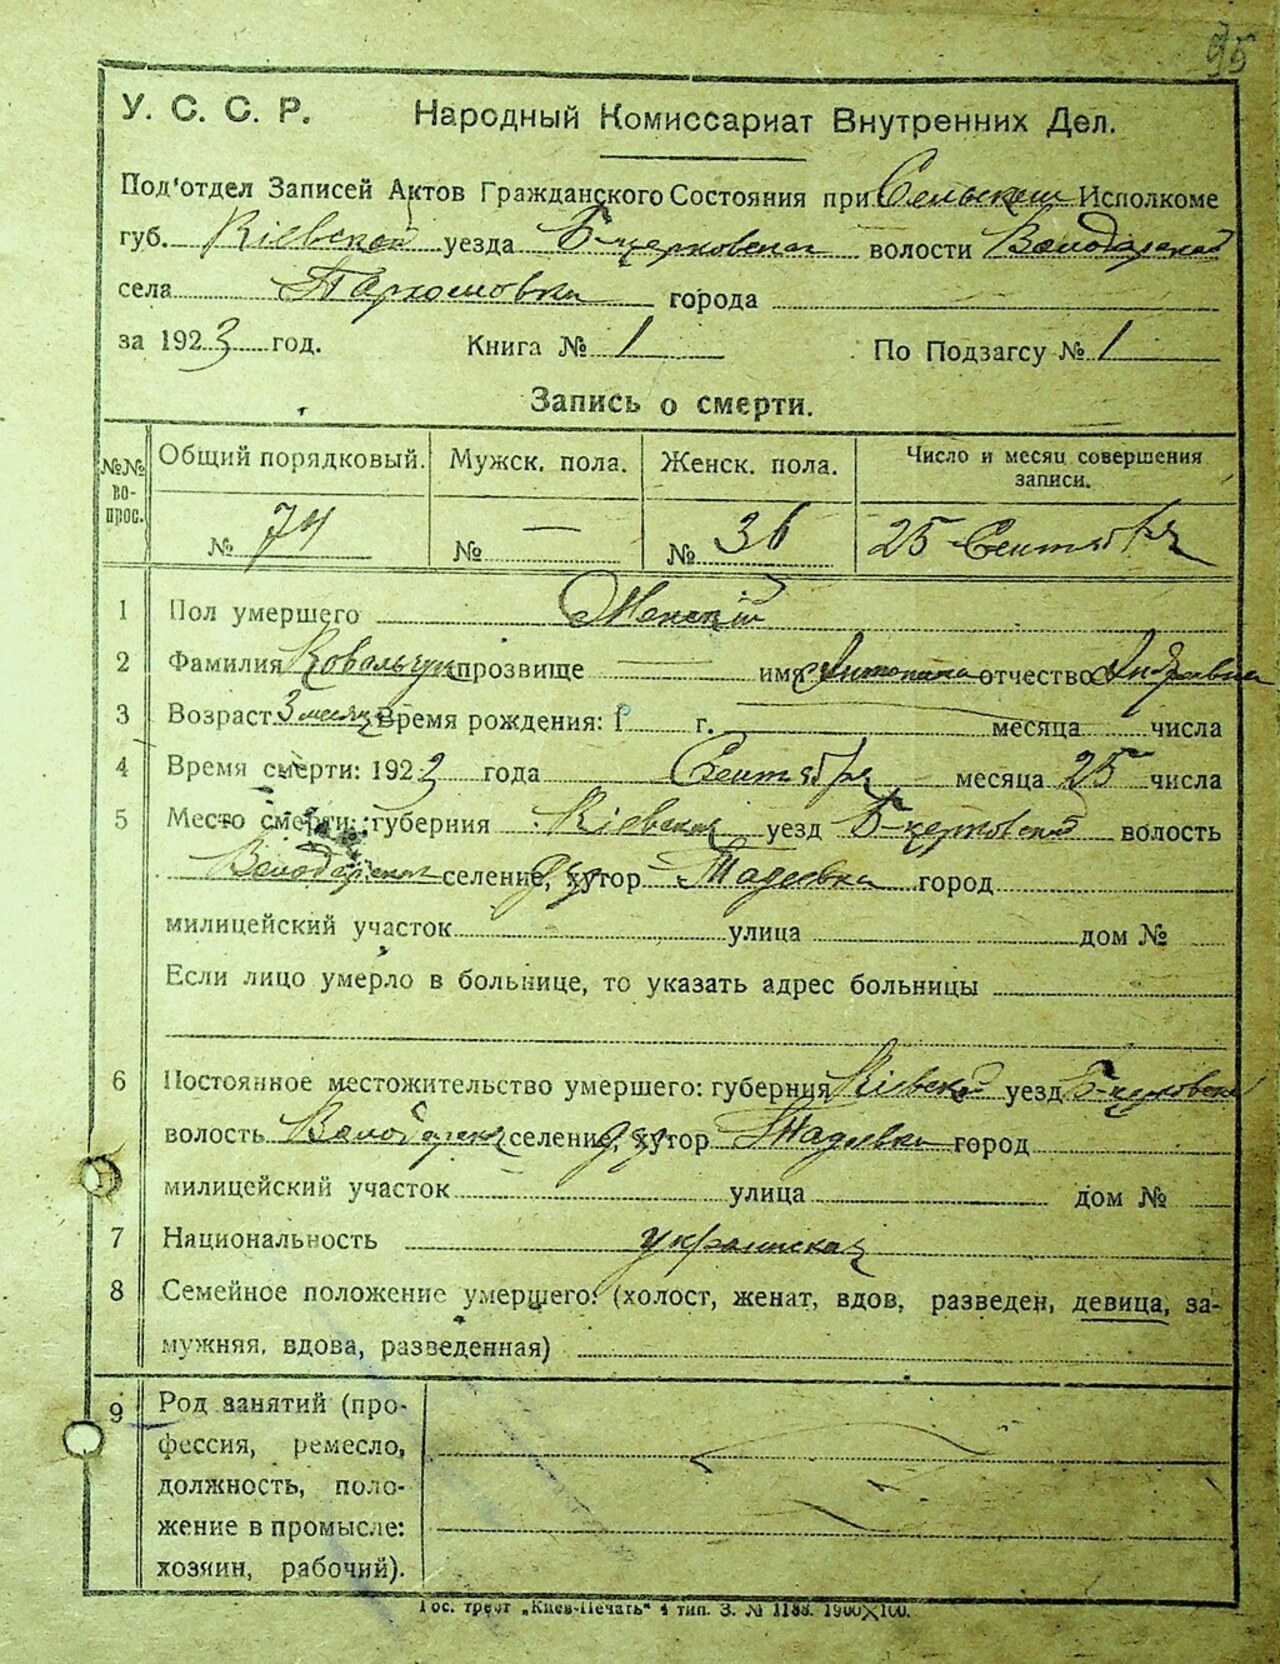 95
У. С. С. Р. Народный Комиссариат Внутренних Дел.
Под'отдел Записей Актов Гражданского Состояния при Исполкоме
губ. Кіевской уезда Б-церковской волости Володарской
села Пархомовки города
за 1923 год. Книга № 1 По Подзагсу № 1
Запись о смерти.
№№ во-прос. Общий порядковый. Мужск. пола. Женск. пола. Число и месяц совершения записи.
№ 74 № — № 36 25 Сентября
1 Пол умершего Женскій
2 Фамилия Ковальчук прозвище — имя Антонина отчество Андревна
3 Возраст 3 месяц Время рождения: 1 г. месяца числа
4 Время смерти: 1923 года Сентября месяца 25 числа
5 Место смерти: губерния Кіевская уезд Б-церковской волость
Володарская селение, хутор Тадеевка город
милицейский участок улица дом №
Если лицо умерло в больнице, то указать адрес больницы
6 Постоянное местожительство умершего: губерния Кіевской уезд Б-церковской
волость Володарская селение, хутор Тадеевка город
милицейский участок улица дом №
7 Национальность украинская
8 Семейное положение умершего: (холост, женат, вдов, разведен, девица, за-
мужняя, вдова, разведенная)
9 Род занятий (про-
фессия, ремесло,
должность, поло-
жение в промысле:
хозяин, рабочий).
Гос. трест „Киев-Печать" 4 тип. З. № 1188. 1900×100.